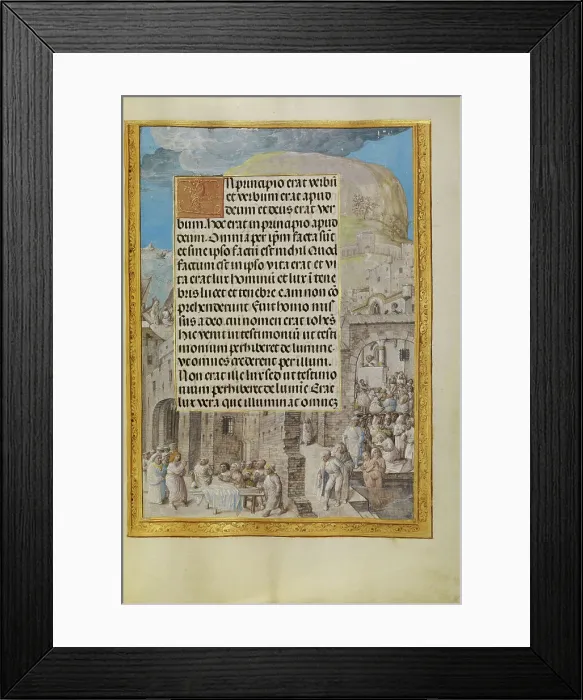 IN principio erat verbū
et verbum erat apud
deum et deus erat ver
bum. Hoc erat in principio apud
deum. Omnia per ip̄m facta sūt
et sine ipso factū est nichil Quod
factum est in ipso vita erat et vi
ta erat lux hominū et lux ī tene
bris lucet et tenebre eam non cō
prehenderunt Fuit homo mis
sus a deo cui nomen erat ioh̄es
Hic venit in testimoniū ut testi
monium perhiberet de lumine
vt omnes crederent per illum.
Non erat ille lux sed ut testimo
nium perhiberet de lumīe Erat
lux vera que illuminat omnem